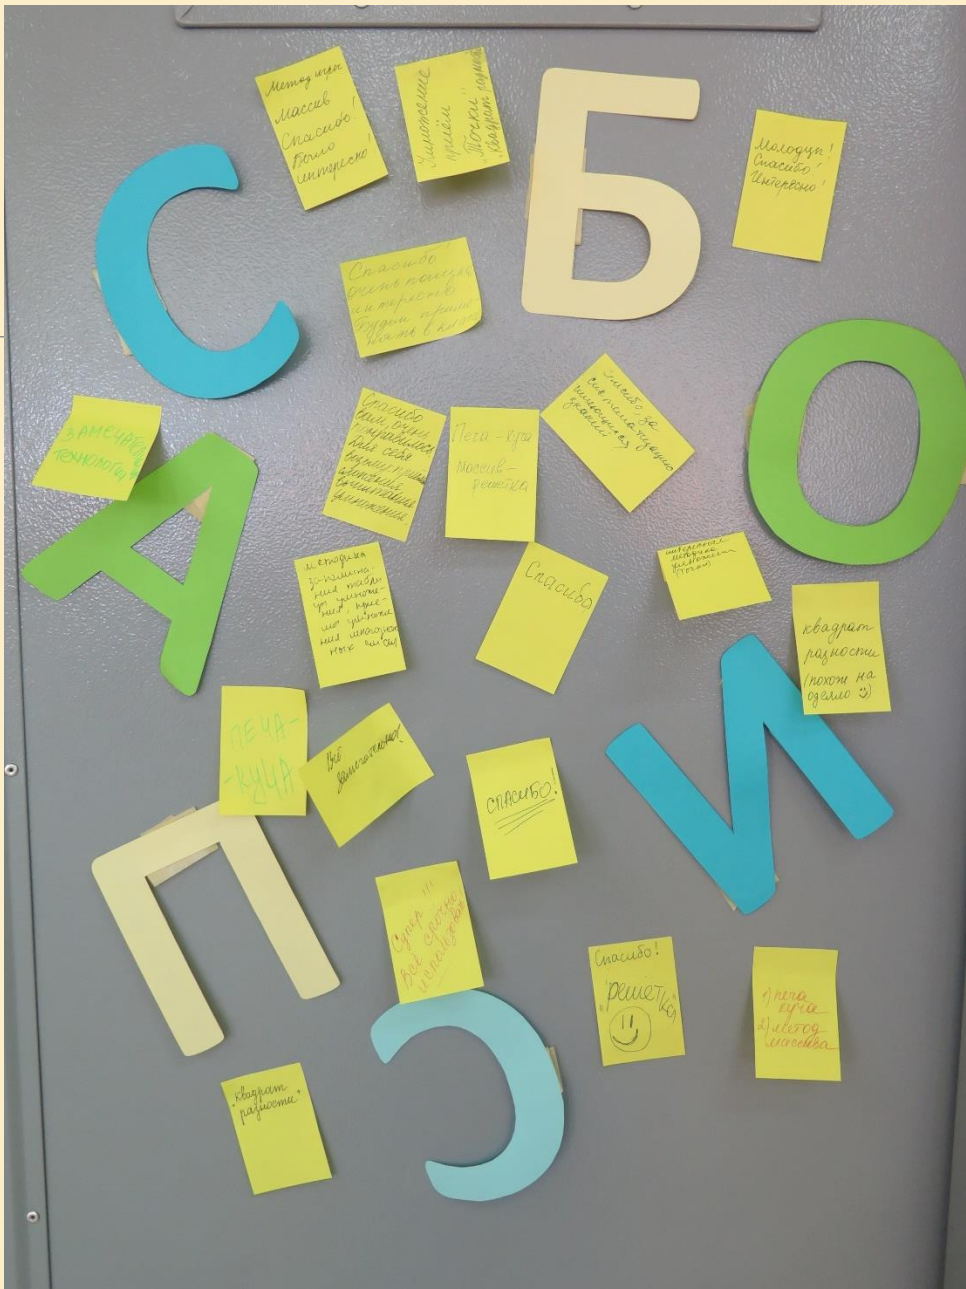 Метод игры
Массив
Спасибо!
Было
интересно!
Умножение
приём
"Точки"
Квадрат разной
Б
Молодцы!
Спасибо!
Интересно!
С
Спасибо!
очень полезно
интересно
Будем приме-
нять в кл
О
ЗАМЕЧАТ
ТЕХНОЛОГИЯ
А
Спасибо
вам, очень
понравилось
Для себя
возьму приём
сложения
вычитания
умножения
Печа-куча
массив-
решетка
Спасибо, за
систематизацию
имеющихся
знаний!
методика
запомина-
ния табли
цы умноже-
ния, прие-
мы умноже
ния многознач
ных чисел
Спасибо
интересная
методика
умножения
(точки)
квадрат
разности
(похож на
одеяло
И
ПЕЧА-
-КУЧА
Всё
замечательно!
СПАСИБО!
П
Супер!!!
Всё срочно
использовать!
Спасибо!
"решетка"
1) печа
куча
2) метод
массива
С
"квадрат
разности"